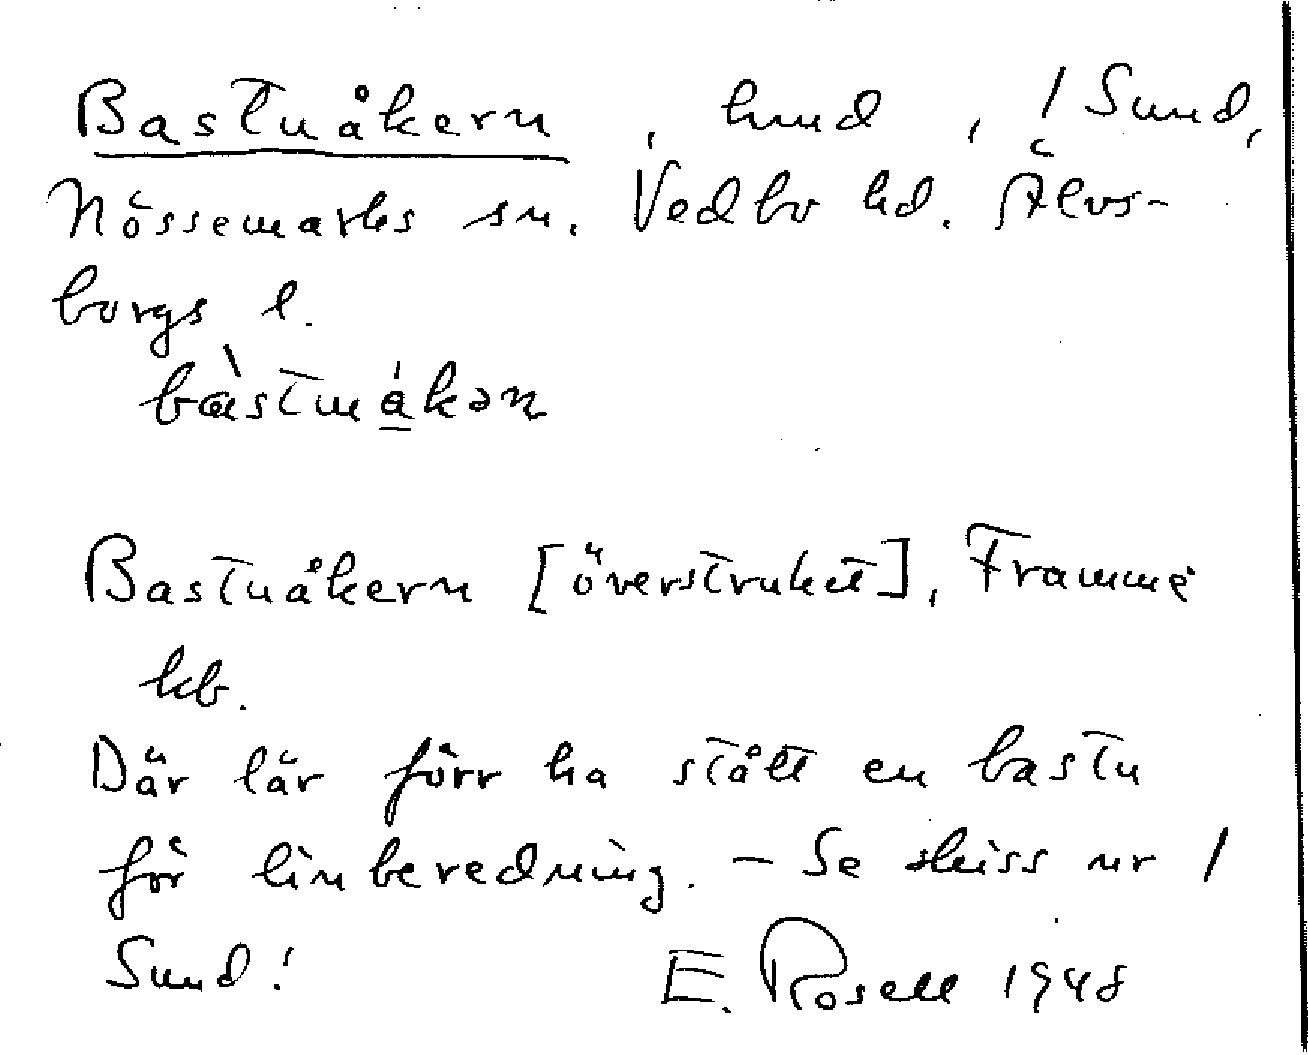 Bastuåkern, hmd, 1 Sund,
Nössemarks sn. Vedbo hd. Älvs-
borgs l.
bàstuákən
Bastuåkern [överstruket], Framme
kb.
Där lär förr ha stått en bastu
för linberedning. – Se skiss nr 1
Sund!
E. Rosell 1948